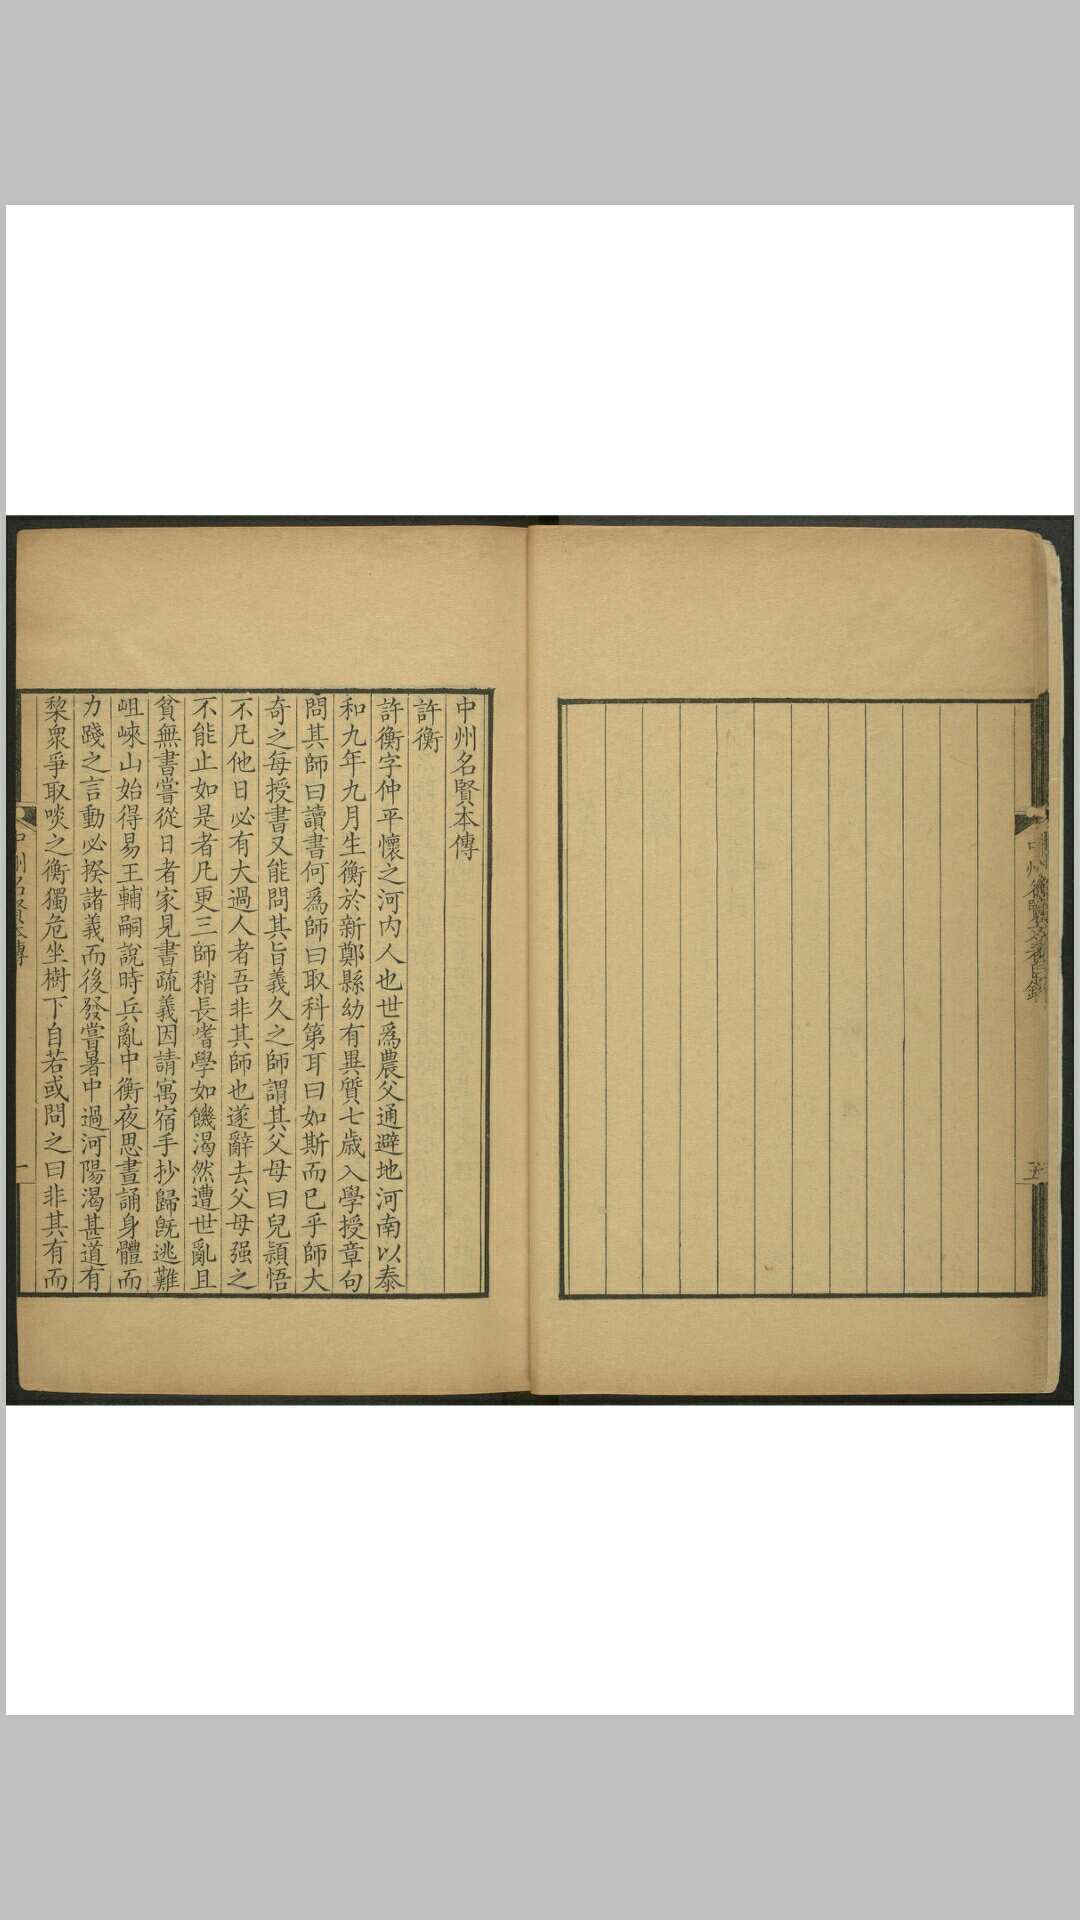 中州名賢本傳
許衡
許衡字仲平懷之河內人也世爲農父通避地河南以泰
和九年九月生衡於新鄭縣幼有異質七歲入學授章句
問其師曰讀書何爲師曰取科第耳曰如斯而已乎師大
奇之每授書又能問其旨義久之師謂其父母曰兒頴悟
不凡他日必有大過人者吾非其師也遂辭去父母强之
不能止如是者凡更三師稍長嗜學如饑渴然遭世亂且
貧無書嘗從日者家見書疏義因請寓宿手抄歸旣逃難
岨崍山始得易王輔嗣說時兵亂中衡夜思晝誦身體而
力踐之言動必揆諸義而後發嘗暑中過河陽渴甚道有
棃衆爭取啖之衡獨危坐樹下自若或問之曰非其有而
中州名賢本傳
一